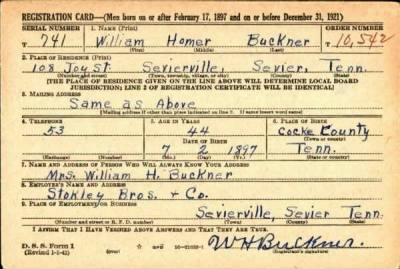 REGISTRATION CARD—(Men born on or after February 17, 1897 and on or before December 31, 1921)
SERIAL NUMBER 1. NAME (Print) ORDER NUMBER
T 741 William Homer Buckner T 10,542
(First) (Middle) (Last)
2. PLACE OF RESIDENCE (Print)
108 Joy St. Sevierville, Sevier, Tenn.
(Number and street) (Town, township, village, or city) (County) (State)
[THE PLACE OF RESIDENCE GIVEN ON THE LINE ABOVE WILL DETERMINE LOCAL BOARD
JURISDICTION; LINE 2 OF REGISTRATION CERTIFICATE WILL BE IDENTICAL]
3. MAILING ADDRESS
Same as Above
[Mailing address if other than place indicated on line 2. If same insert word same]
4. TELEPHONE 5. AGE IN YEARS 6. PLACE OF BIRTH
53 44 Cocke County
DATE OF BIRTH (Town or county)
7 2 1897 Tenn.
(Exchange) (Number) (Mo.) (Day) (Yr.) (State or country)
7. NAME AND ADDRESS OF PERSON WHO WILL ALWAYS KNOW YOUR ADDRESS
Mrs. William H. Buckner
8. EMPLOYER'S NAME AND ADDRESS
Stokley Bros. + Co.
9. PLACE OF EMPLOYMENT OR BUSINESS
Sevierville, Sevier Tenn.
(Number and street or R. F. D. number) (Town) (County) (State)
I AFFIRM THAT I HAVE VERIFIED ABOVE ANSWERS AND THAT THEY ARE TRUE.
D. S. S. Form 1
(Revised 1-1-42) (over)
W H Buckner
(Registrant's signature)